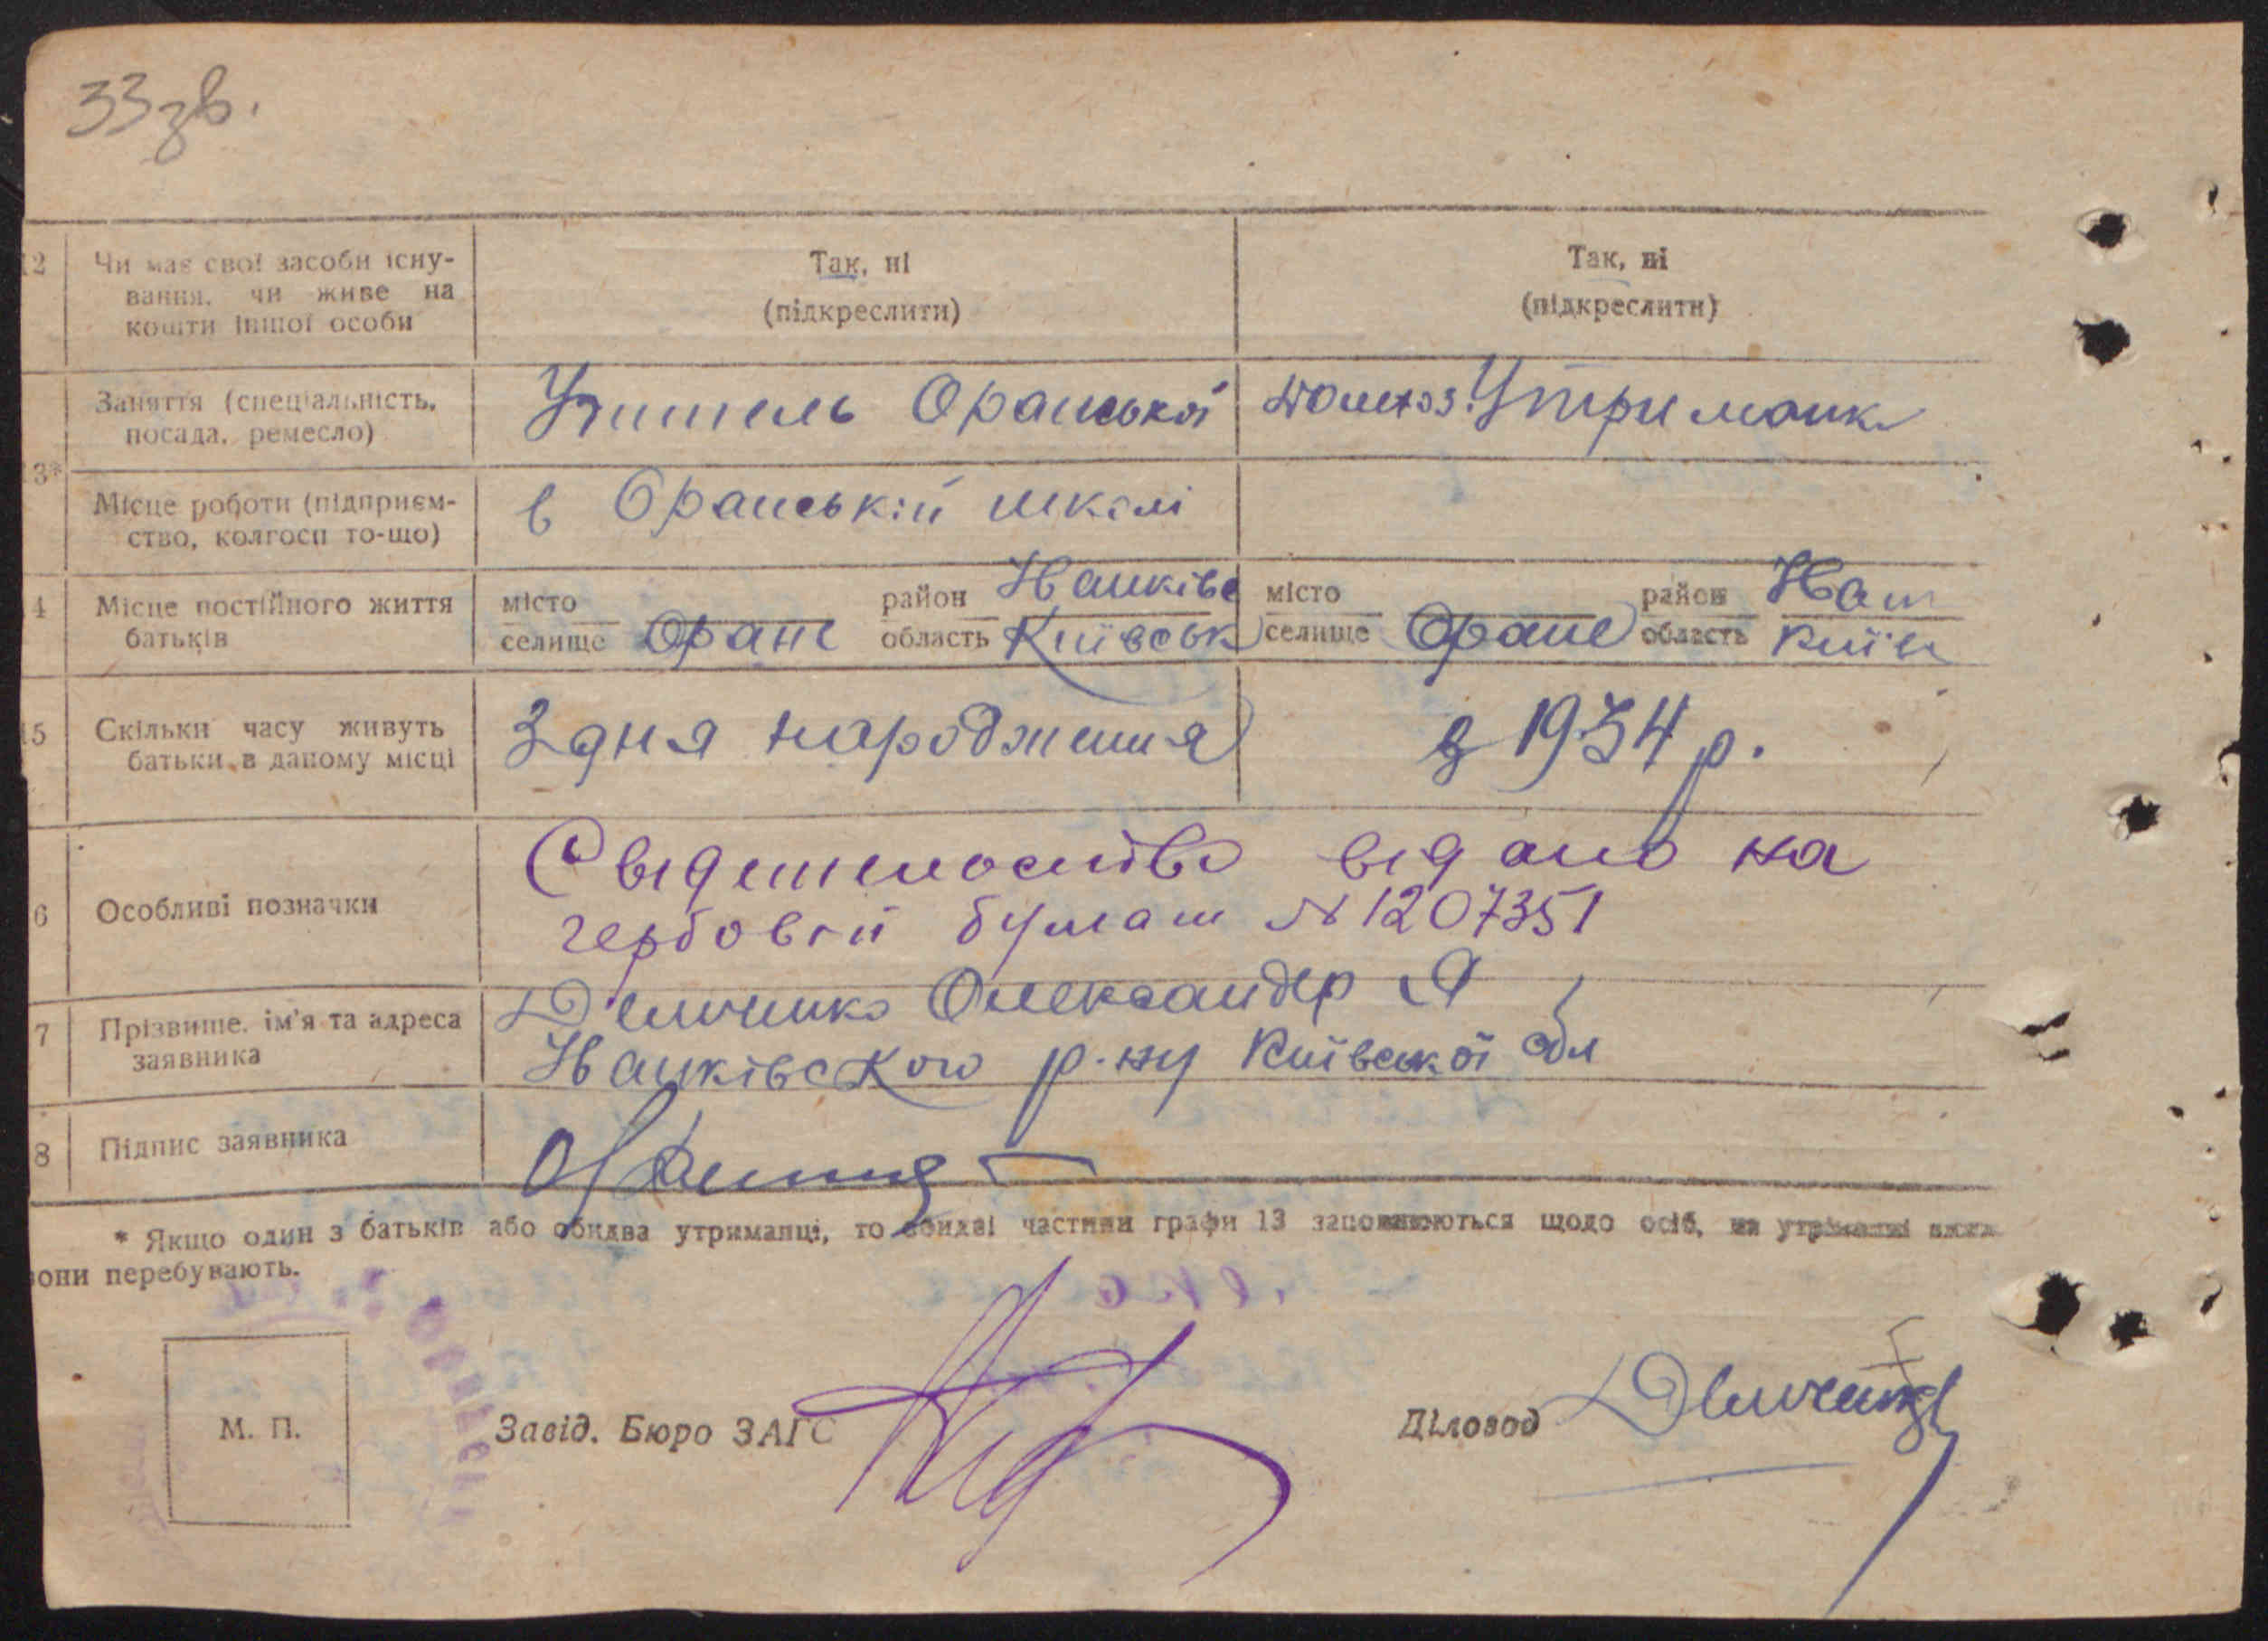 33 зв.
12 Чи має свої засоби існу- Так, ні Так, ні
вання, чи живе на (підкреслити) (підкреслити)
кошти іншої особи
Заняття (спеціальність, Учитель Оранської домхоз. Утриманк
посада, ремесло)
13*
Місце роботи (підприєм- в Оранській школі
ство, колгосп то-що)
4 Місце постійного життя місто район місто район
батьків селище Оране область Київськ селище Оране область Київ
15 Скільки часу живуть З дня народження з 1934 р.
батьки в даному місці
6 Особливі позначки
Свідетельство видано на
гербовій бумаги № 1207351
7 Прізвище, ім'я та адреса Демченко Олександер Я
заявника р-ну Київської обл
8 Підпис заявника
* Якщо один з батьків або обидва утриманці, то обидві частини графи 13 заповнюються щодо осіб, на утриманні яких
вони перебувають.
М. П.
Завід. Бюро ЗАГС
Діловод Демченко